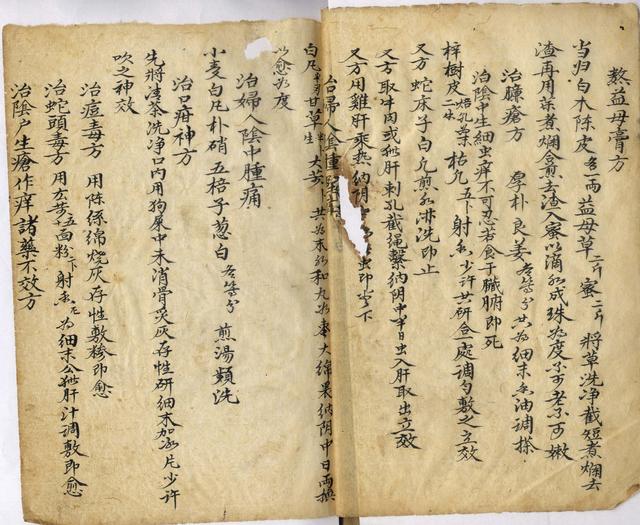 熬益母膏方
当归白木陈皮各一両益母草二斤蜜二斤將草洗净截短煮烂去
渣再用菜煮烂会煎去渣入蜜以滴水成珠为度不可老不可嫩
治臁瘡方 厚朴良姜各等分共为细末香油調搽
治陰中生细虫痒不可忍若食于臟腑即死
梓樹皮二水焙乳葉枯凢五卜射香少许共研合一處調匀敷之立效
又方 蛇床子白凢煎水淋洗即止
又方取牛肉或猪肝刺孔截绳繫纳阴中半日虫入肝取出立效
又方用雞肝乘热纳阴虫即下
治婦人陰腫
白凢半两甘草生大黄共为末水和丸枣大绵裹纳阴中日両換
以愈为度
治婦人陰中腫痛
小麦白凢朴硝五棓子葱白各等分煎湯頻洗
治口疳神方
先將凌茶洗净口内用狗屎中未消骨煅灰存性研细末加冰片少许
吹之神效
治痘毒方 用陈絲綿烧灰存性敷糝即愈
治蛇頭毒方用五面粉卜射香为细末公猪肝汁調敷即愈
治陰户生瘡作痒諸藥不效方